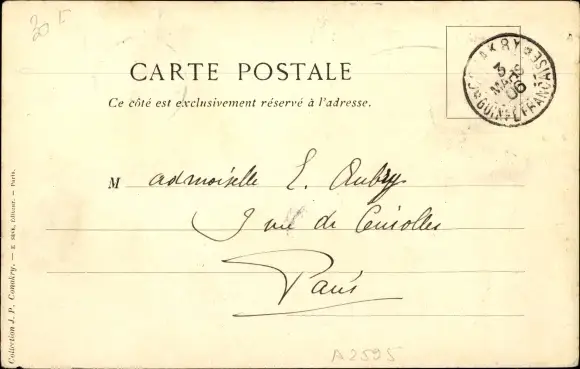 20 F
AKRY
3
MARS
06
GUINÉE FRANÇAISE
CARTE POSTALE
Ce côté est exclusivement réservé à l'adresse.
Madmoiselle E. Aubry
9 rue de
Paris
Collection J. P. Conakry. — Éditeur. — Paris.
A2595